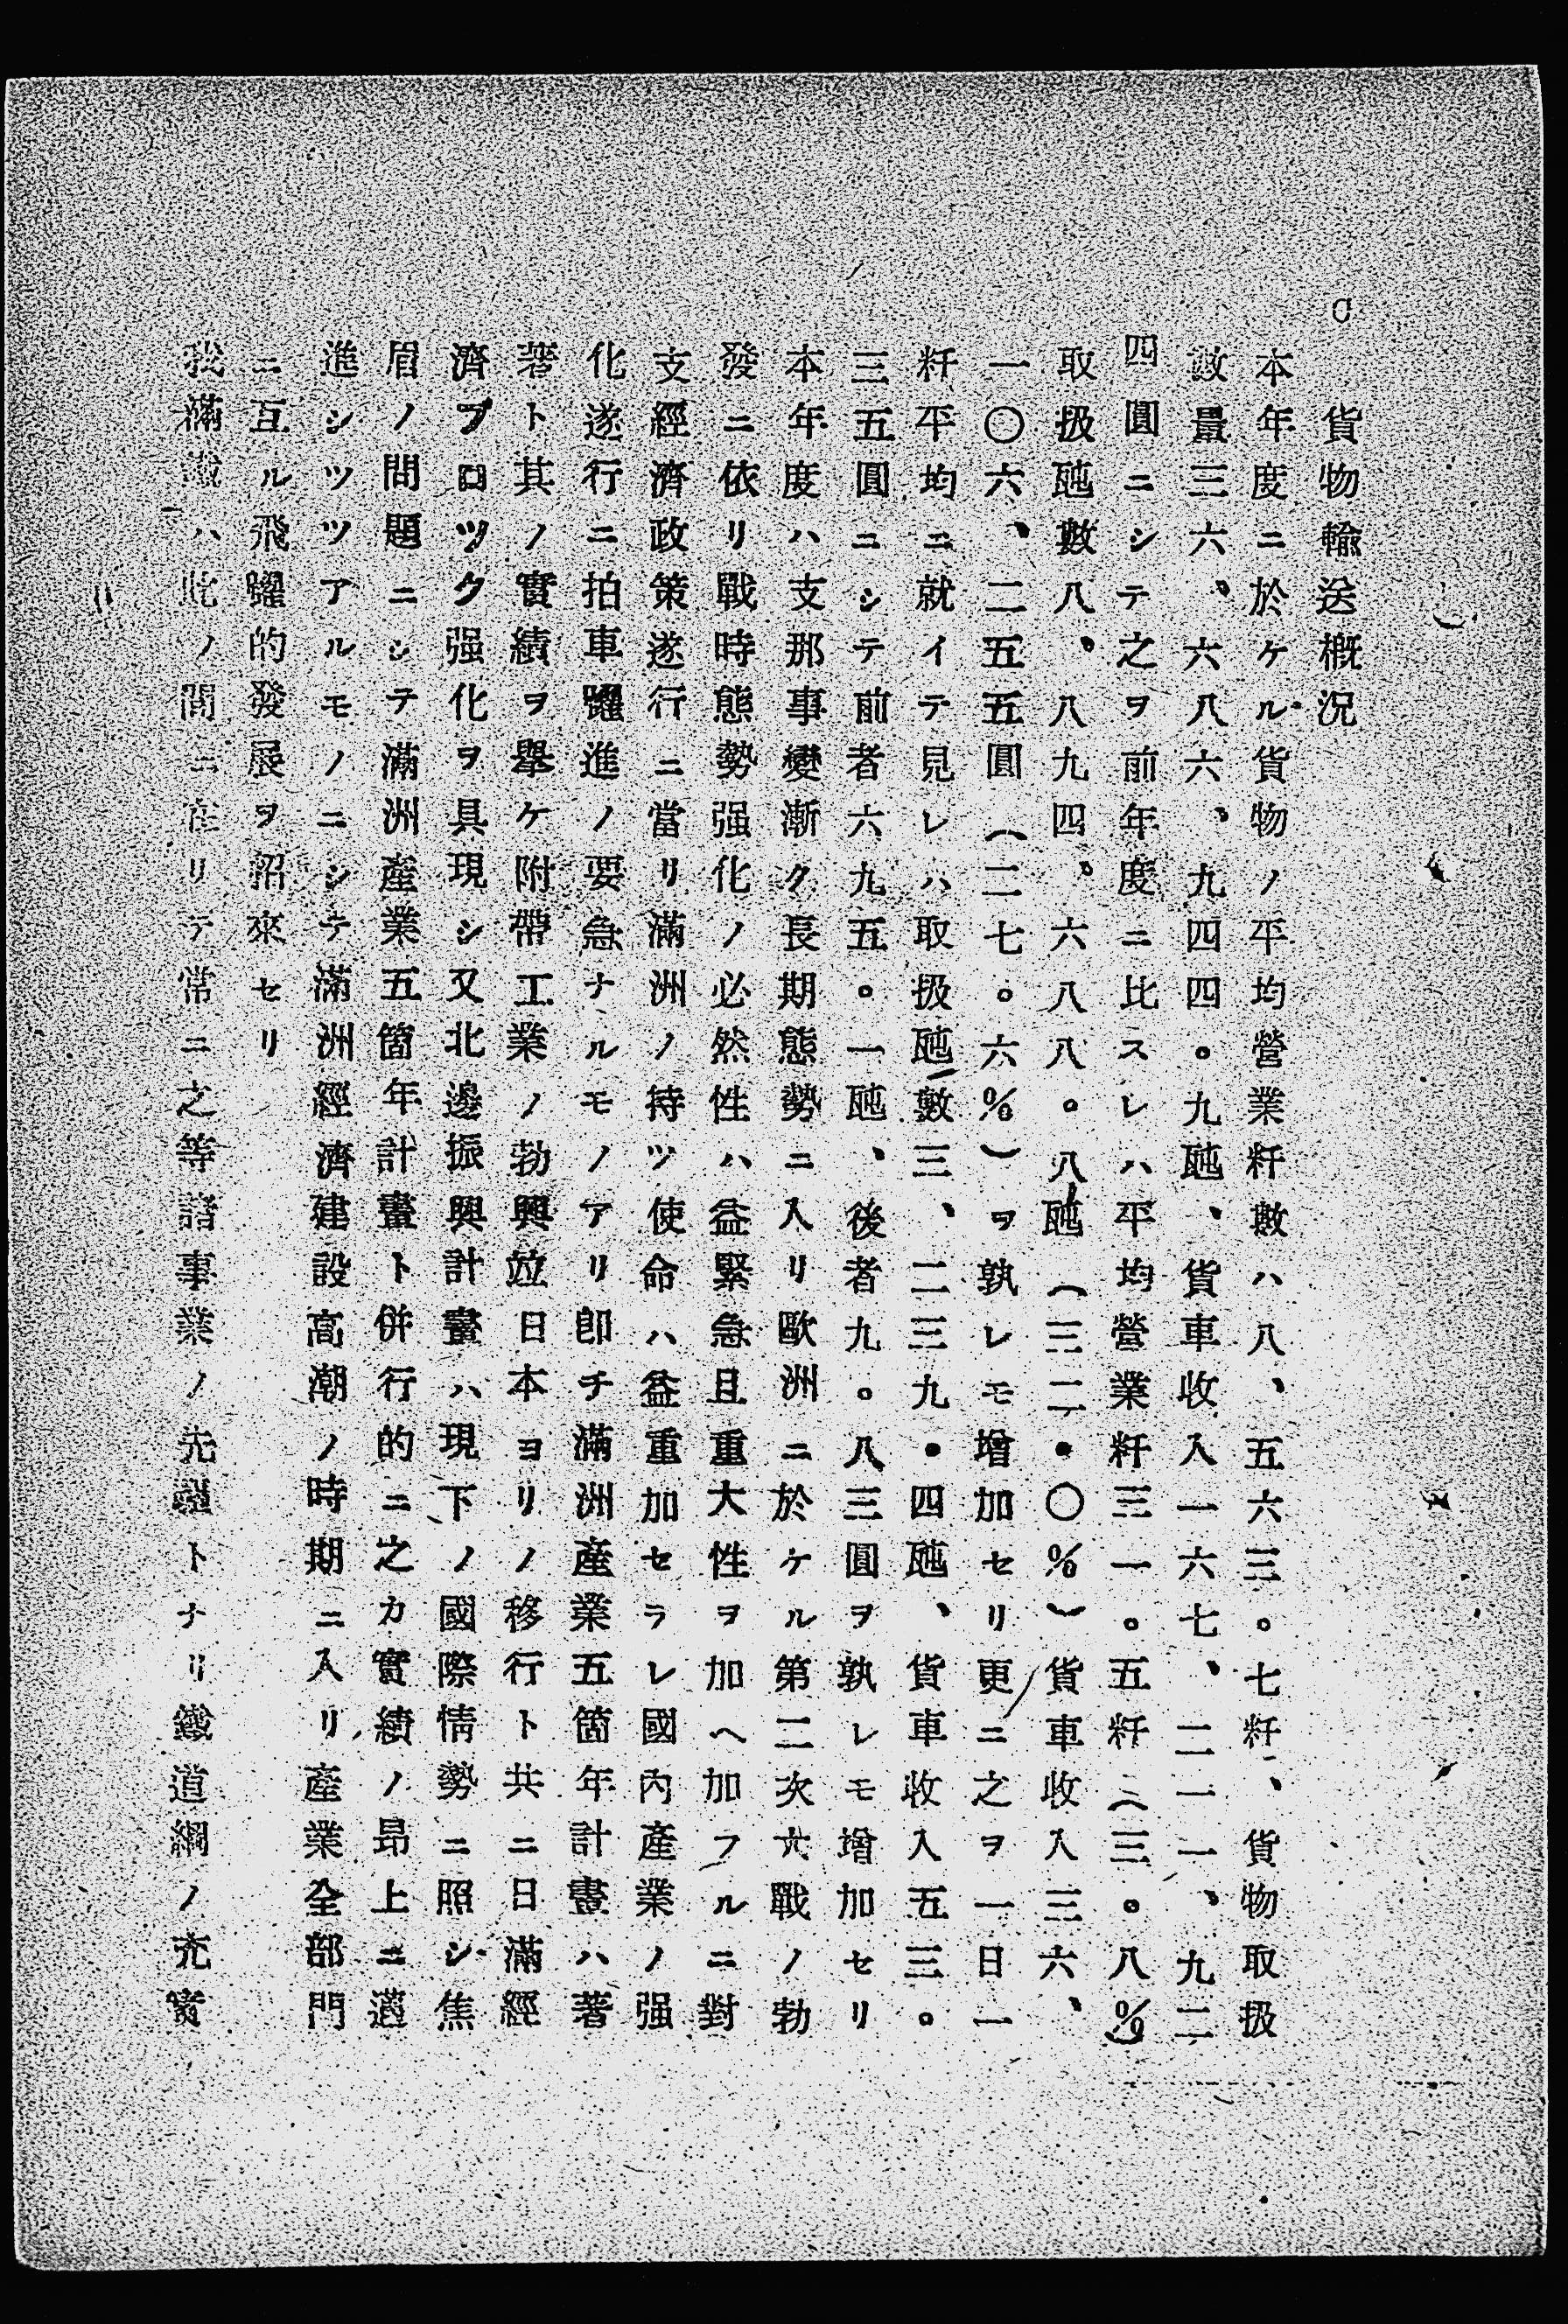 貨物輸送概況
本年度ニ於ケル貨物ノ平均營業粁數ハ八、五六三。七粁、貨物取扱
數量三六、六八六、九四四。九瓲、貨車收入一六七、二一一、九二
四圓ニシテ之ヲ前年度ニ比スレハ平均營業粁三一。五粁（三。八％）
取扱瓲數八、八九四、六八八。八瓲（三二・〇％）貨車收入三六、
一〇六、二五五圓（二七。六％）ヲ孰レモ增加セリ更ニ之ヲ一日一
粁平均ニ就イテ見レハ取扱瓲數三、二三九・四瓲、貨車收入五三。
三五圓ニシテ前者六九五。一瓲、後者九。八三圓ヲ孰レモ增加セリ
本年度ハ支那事變漸ク長期態勢ニ入リ歐洲ニ於ケル第二次大戰ノ勃
發ニ依リ戰時態勢强化ノ必然性ハ益緊急且重大性ヲ加ヘ加フルニ對
支經濟政策遂行ニ當リ滿洲ノ持ツ使命ハ益重加セラレ國內產業ノ强
化遂行ニ拍車躍進ノ要急ナルモノアリ卽チ滿洲產業五箇年計畫ハ著
著ト其ノ實績ヲ擧ケ附帶工業ノ勃興竝日本ヨリノ移行ト共ニ日滿經
濟ブロツク强化ヲ具現シ又北邊振興計畫ハ現下ノ國際情勢ニ照シ焦
眉ノ問題ニシテ滿洲產業五箇年計畫ト併行的ニ之カ實績ノ昂上ニ邁
進シツツアルモノニシテ滿洲經濟建設高潮ノ時期ニ入リ產業全部門
ニ互ル飛躍的發展ヲ招來セリ
我滿鐵ハ此ノ間ニ在リテ常ニ之等諸事業ノ先驅トナリ鐵道網ノ充實